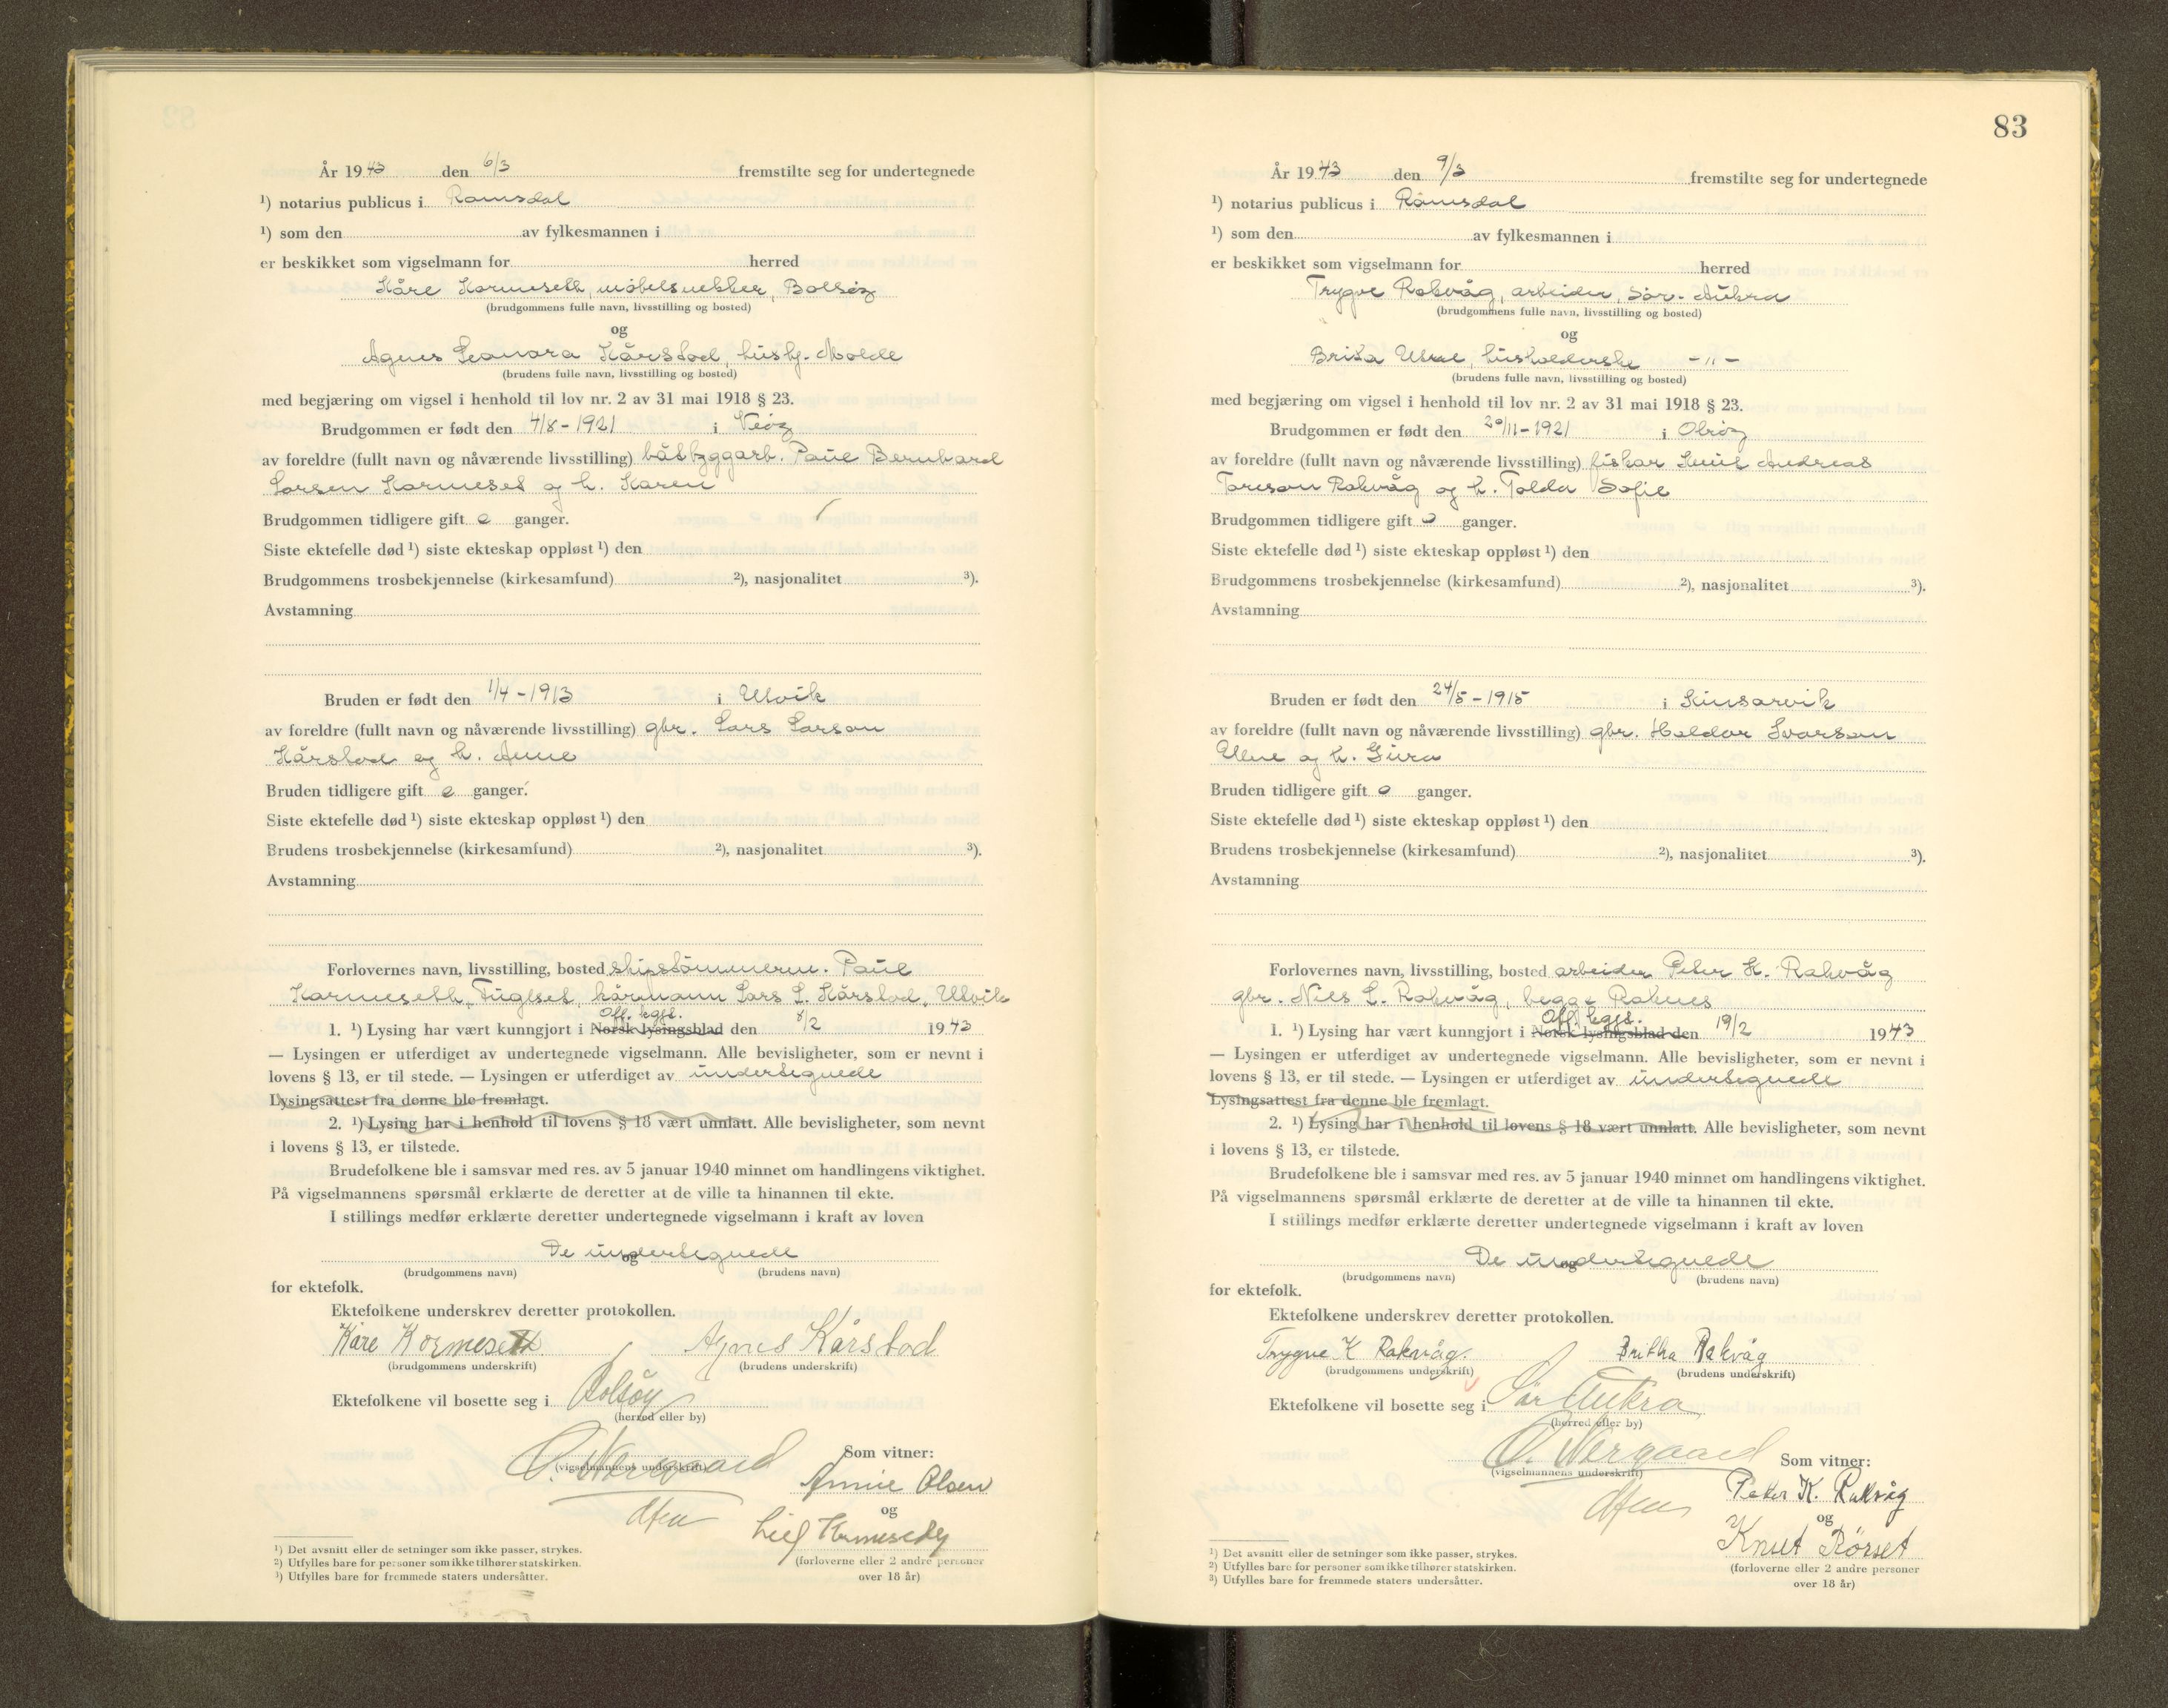 År 1943 den 6/3 fremstilte seg for undertegnede
¹) notarius publicus i Romsdal
¹) som den av fylkesmannen i
er beskikket som vigselmann for herred
Kåre Kormeseth, möbelsnekker, Bolsöy
(brudgommens fulle navn, livsstilling og bosted)
og
Agnes Leonora Kårstad, hush. Molde
(brudens fulle navn, livsstilling og bosted)
med begjæring om vigsel i henhold til lov nr. 2 av 31 mai 1918 § 23.
Brudgommen er født den 4/8-1921 i Veöy
av foreldre (fullt navn og nåværende livsstilling) båtbyggarb. Paul Bernhard
Larsen Kormeset og h. Karen
Brudgommen tidligere gift 0 ganger.
Siste ektefelle død ¹) siste ekteskap oppløst ¹) den
Brudgommens trosbekjennelse (kirkesamfund) ²), nasjonalitet ³).
Avstamning
Bruden er født den 1/4-1913 i Ulvik
av foreldre (fullt navn og nåværende livsstilling) gbr. Lars Larson
Kårstad og h. Anne
Bruden tidligere gift 0 ganger.
Siste ektefelle død ¹) siste ekteskap oppløst ¹) den
Brudens trosbekjennelse (kirkesamfund) ²), nasjonalitet ³).
Avstamning
Forlovernes navn, livsstilling, bosted skipstömmerm. Paul
Kormeseth, Fuglset, kårmann Lars L. Kårstad, Ulvik
Off. kgjl.
1. ¹) Lysing har vært kunngjort i Norsk lysingsblad den 8/2 1943
— Lysingen er utferdiget av undertegnede vigselmann. Alle bevisligheter, som er nevnt i
lovens § 13, er til stede. — Lysingen er utferdiget av undertegnede
Lysingsattest fra denne ble fremlagt.
2. ¹) Lysing har i henhold til lovens § 18 vært unnlatt. Alle bevisligheter, som nevnt
i lovens § 13, er tilstede.
Brudefolkene ble i samsvar med res. av 5 januar 1940 minnet om handlingens viktighet.
På vigselmannens spørsmål erklærte de deretter at de ville ta hinannen til ekte.
I stillings medfør erklærte deretter undertegnede vigselmann i kraft av loven
De undertegnede
og
(brudgommens navn) (brudens navn)
for ektefolk.
Ektefolkene underskrev deretter protokollen.
Kåre Kormeseth Agnes Kårstad
(brudgommens underskrift) (brudens underskrift)
Ektefolkene vil bosette seg i Bolsöy
(herred eller by)
O. Nergaard Som vitner:
(vigselmannens underskrift)
Annie Olsen
og
Leif
(forloverne eller 2 andre personer
over 18 år)
¹) Det avsnitt eller de setninger som ikke passer, strykes.
²) Utfylles bare for personer som ikke tilhører statskirken.
³) Utfylles bare for fremmede staters undersåtter.
83
År 1943 den 9/3 fremstilte seg for undertegnede
¹) notarius publicus i Romsdal
¹) som den av fylkesmannen i
er beskikket som vigselmann for herred
Trygve Rakvåg, arbeider, Sör-Aukra
(brudgommens fulle navn, livsstilling og bosted)
og
Brita Utne, husholderske -"-
(brudens fulle navn, livsstilling og bosted)
med begjæring om vigsel i henhold til lov nr. 2 av 31 mai 1918 § 23.
Brudgommen er født den 20/11-1921 i Otröy
av foreldre (fullt navn og nåværende livsstilling) fisker Knut Andreas
Rakvåg og h. Sofie
Brudgommen tidligere gift 0 ganger.
Siste ektefelle død ¹) siste ekteskap oppløst ¹) den
Brudgommens trosbekjennelse (kirkesamfund) ²), nasjonalitet ³).
Avstamning
Bruden er født den 24/5-1915 i Kinsarvik
av foreldre (fullt navn og nåværende livsstilling) gbr. Haldor Ivarson
Utne og h. Guro
Bruden tidligere gift 0 ganger.
Siste ektefelle død ¹) siste ekteskap oppløst ¹) den
Brudens trosbekjennelse (kirkesamfund) ²), nasjonalitet ³).
Avstamning
Forlovernes navn, livsstilling, bosted arbeider Peter K. Rakvåg
gbr. Nils L. Rakvåg, begge Raknes
Off. kgjl.
1. ¹) Lysing har vært kunngjort i Norsk lysingsblad den 19/2 1943
— Lysingen er utferdiget av undertegnede vigselmann. Alle bevisligheter, som er nevnt i
lovens § 13, er til stede. — Lysingen er utferdiget av undertegnede
Lysingsattest fra denne ble fremlagt.
2. ¹) Lysing har i henhold til lovens § 18 vært unnlatt. Alle bevisligheter, som nevnt
i lovens § 13, er tilstede.
Brudefolkene ble i samsvar med res. av 5 januar 1940 minnet om handlingens viktighet.
På vigselmannens spørsmål erklærte de deretter at de ville ta hinannen til ekte.
I stillings medfør erklærte deretter undertegnede vigselmann i kraft av loven
De undertegnede
og
(brudgommens navn) (brudens navn)
for ektefolk.
Ektefolkene underskrev deretter protokollen.
Trygve K Rakvåg. Britha Rakvåg
(brudgommens underskrift) (brudens underskrift)
Ektefolkene vil bosette seg i Sör Aukra
(herred eller by)
O. Nergaard Som vitner:
(vigselmannens underskrift)
Peter K. Rakvåg
og
Knut Rörset
(forloverne eller 2 andre personer
over 18 år)
¹) Det avsnitt eller de setninger som ikke passer, strykes.
²) Utfylles bare for personer som ikke tilhører statskirken.
³) Utfylles bare for fremmede staters undersåtter.